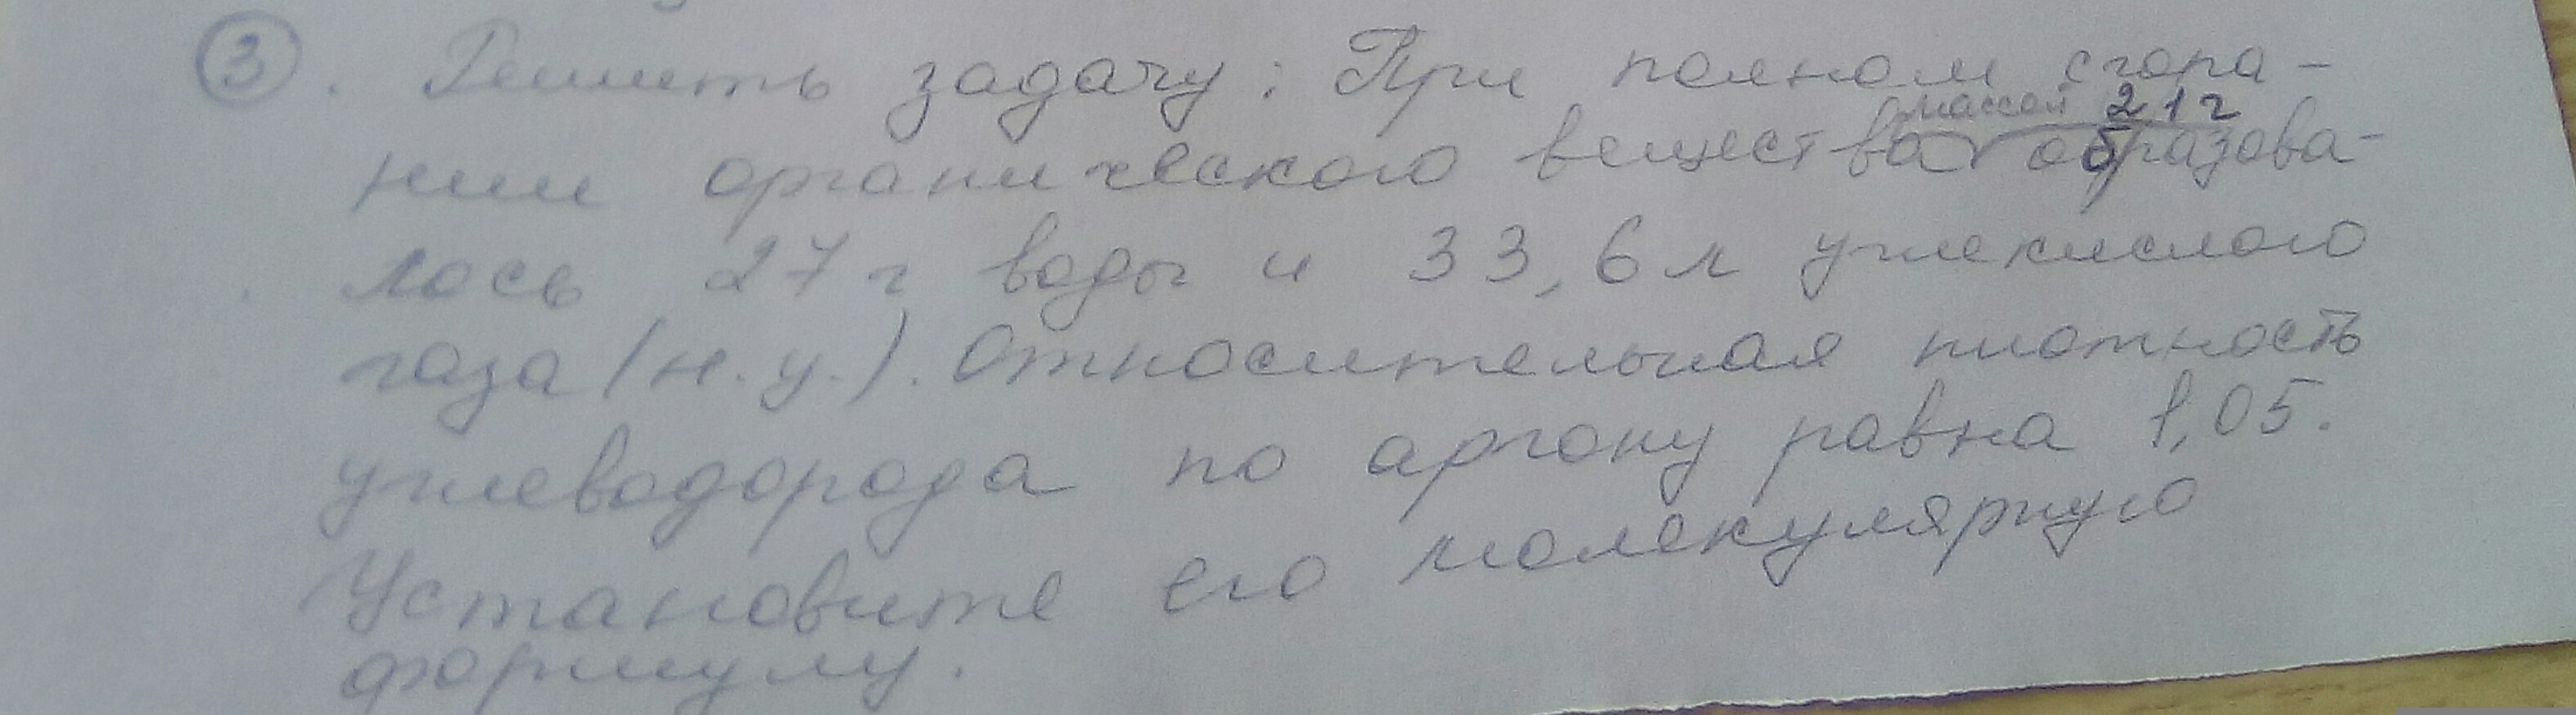 3. Решить задачу: При полном сгора-
массой 21г
нии органического вещества образова-
лось 27 г воды и 33,6 л углекислого
газа (н.у.). Относительная плотность
углеводорода по аргону равна 1,05.
Установите его молекулярную
формулу.